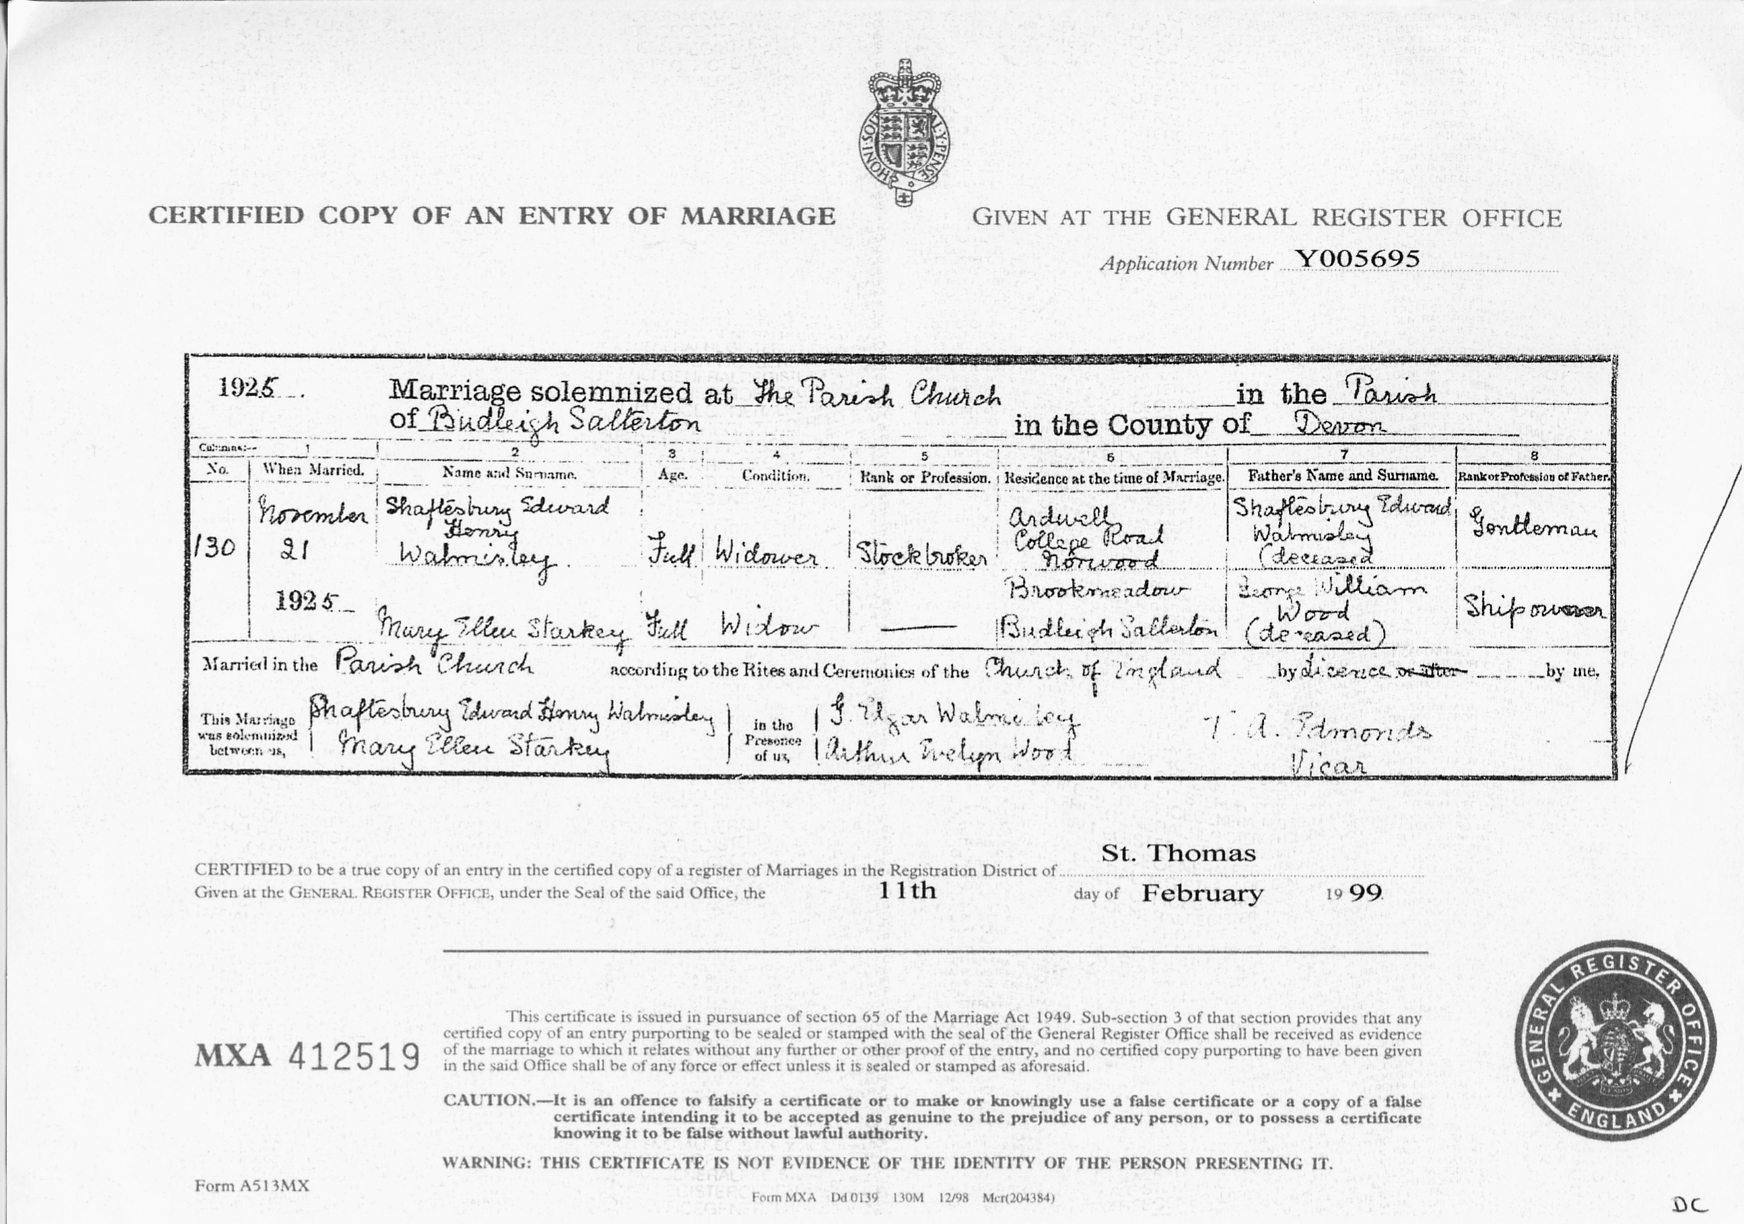 HONI·SOI AL·Y·PENSE
CERTIFIED COPY OF AN ENTRY OF MARRIAGE
GIVEN AT THE GENERAL REGISTER OFFICE
Application Number Y005695
1925. Marriage solemnized at The Parish Church in the Parish
of Budleigh Salterton in the County of Devon
Columns:— 1 2 3 4 5 6 7 8
No. When Married. Name and Surname. Age. Condition. Rank or Profession. Residence at the time of Marriage. Father's Name and Surname. Rank or Profession of Father.
130
November
21
1925
Shaftesbury Edward
Henry
Walmisley
Full
Widower
Stockbroker
Ardwell
College Road
Norwood
Shaftesbury Edward
Walmisley
(deceased
Gentleman
Mary Ellen Starkey
Full
Widow
Brookmeadow
Budleigh Salterton
George William
Wood
(deceased)
Shipowner
Married in the Parish Church according to the Rites and Ceremonies of the Church of England by Licence or after by me,
This Marriage
was solemnized
between us,
Shaftesbury Edward Henry Walmisley
Mary Ellen Starkey
in the
Presence
of us,
G. Edgar Walmisley
Arthur Evelyn Wood
T. A. Edmonds
Vicar
CERTIFIED to be a true copy of an entry in the certified copy of a register of Marriages in the Registration District of St. Thomas
Given at the GENERAL REGISTER OFFICE, under the Seal of the said Office, the 11th day of February 1999
MXA 412519
This certificate is issued in pursuance of section 65 of the Marriage Act 1949. Sub-section 3 of that section provides that any
certified copy of an entry purporting to be sealed or stamped with the seal of the General Register Office shall be received as evidence
of the marriage to which it relates without any further or other proof of the entry, and no certified copy purporting to have been given
in the said Office shall be of any force or effect unless it is sealed or stamped as aforesaid.
CAUTION.—It is an offence to falsify a certificate or to make or knowingly use a false certificate or a copy of a false
certificate intending it to be accepted as genuine to the prejudice of any person, or to possess a certificate
knowing it to be false without lawful authority.
WARNING: THIS CERTIFICATE IS NOT EVIDENCE OF THE IDENTITY OF THE PERSON PRESENTING IT.
GENERAL REGISTER OFFICE
ENGLAND
Form A513MX
Form MXA Dd 0139 130M 12/98 Mcr(204384)
DC